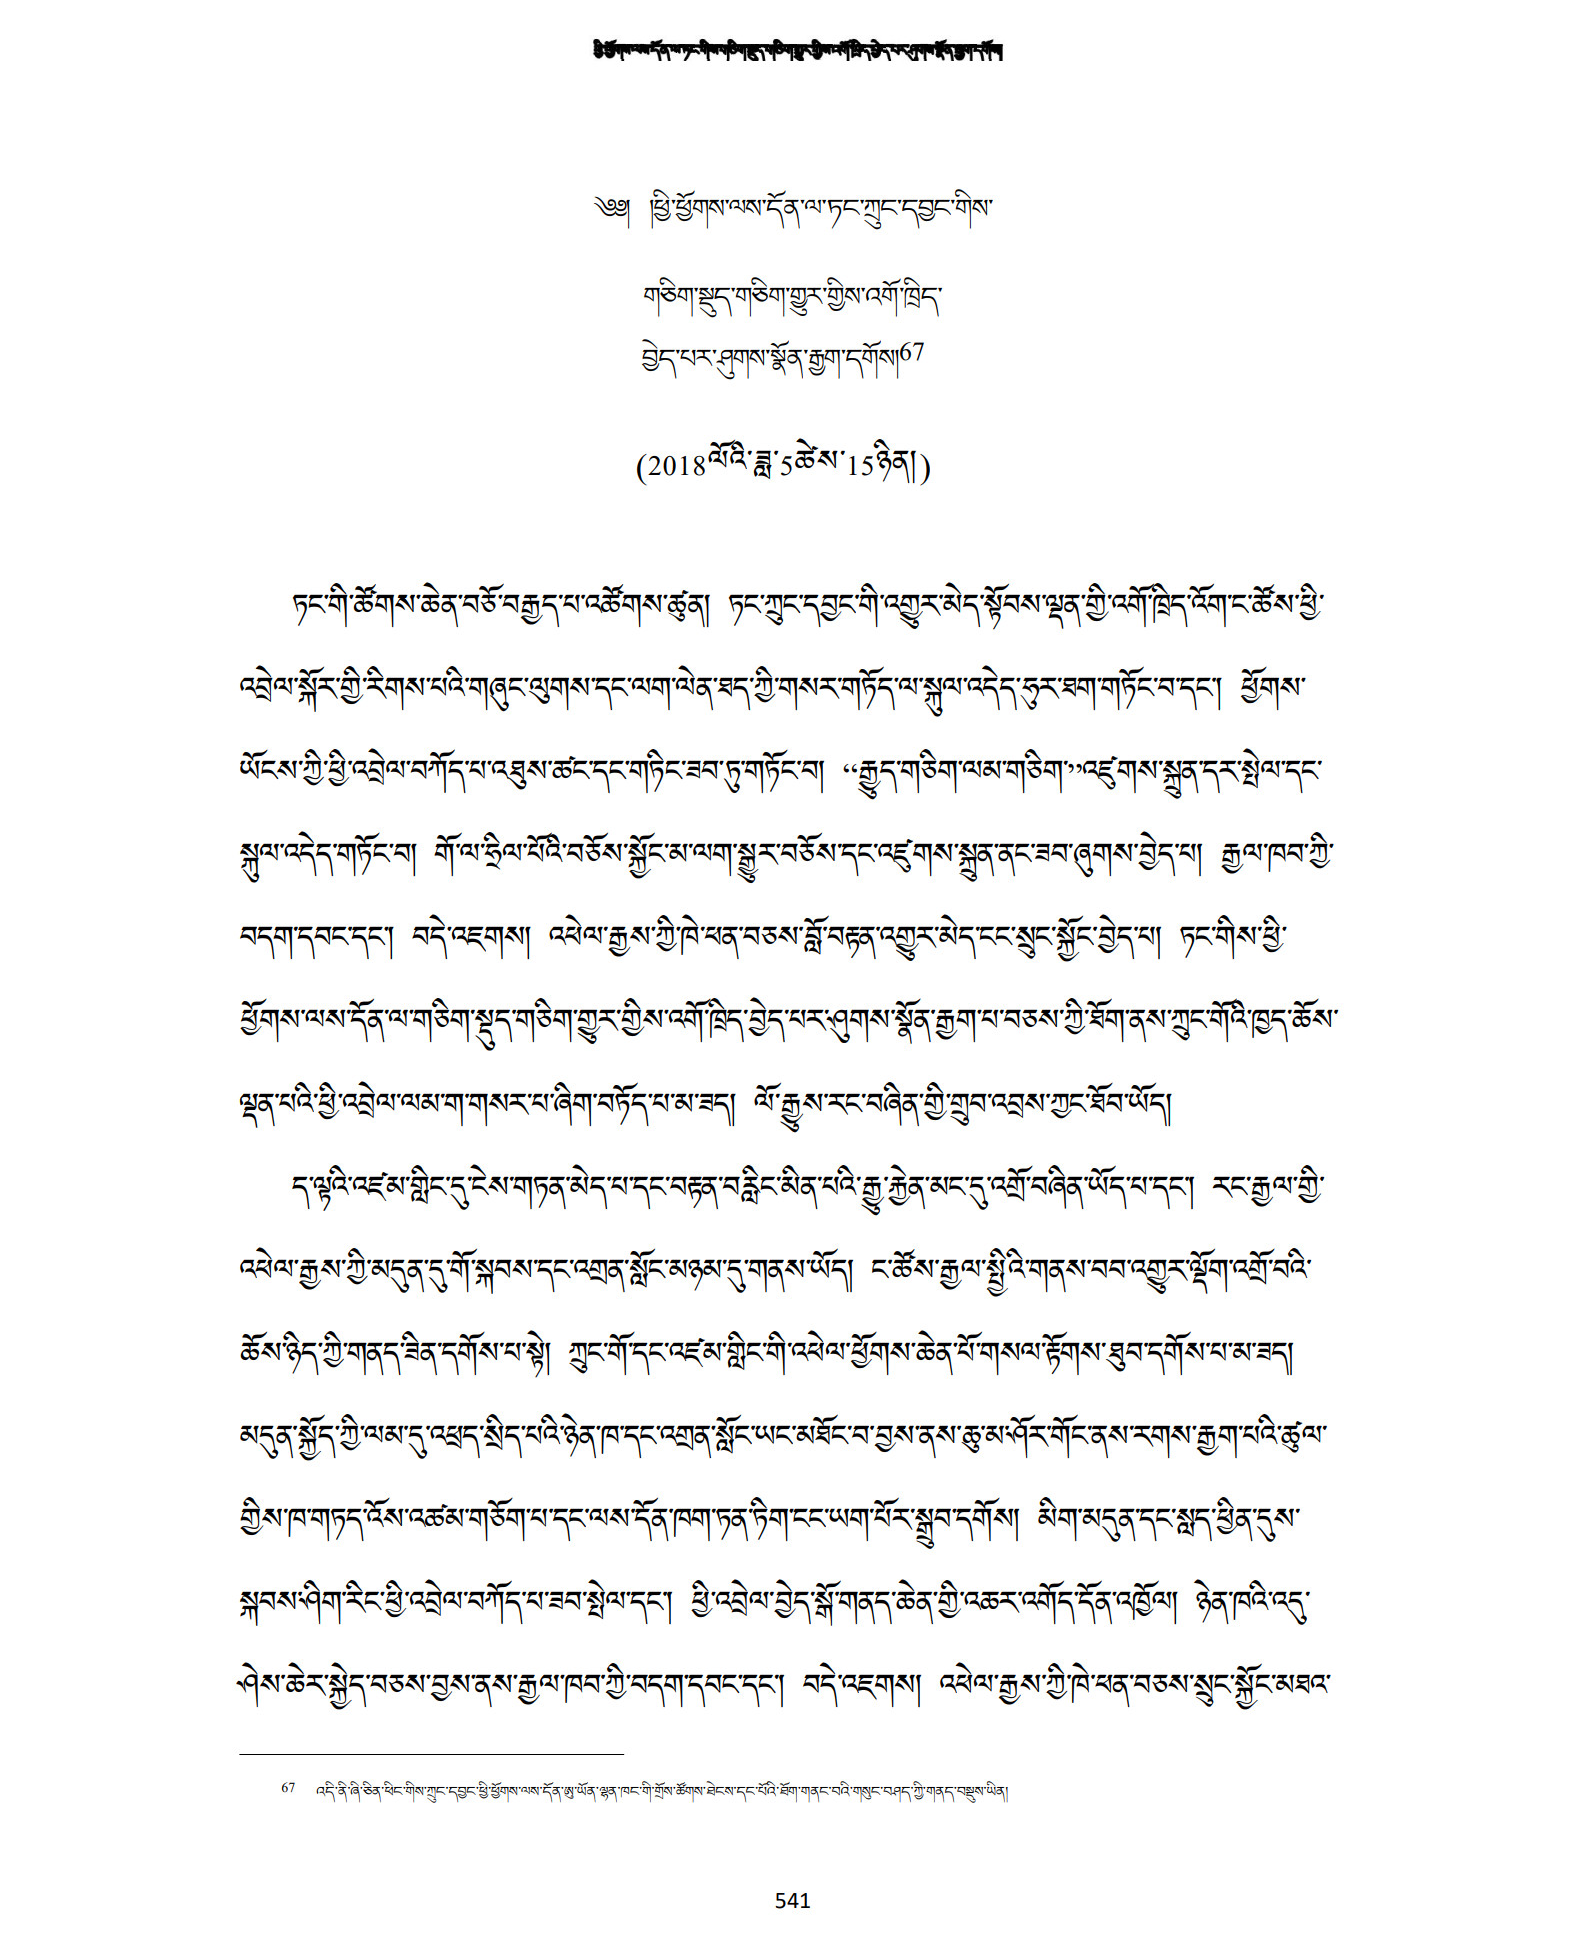 ཕྱི་ཕྱོགས་ལས་དོན་ལ་ཏང་གིས་གཅིག་སྡུད་གཅིག་གྱུར་གྱིས་འགོ་ཁྲིད་བྱེད་པར་ཤུགས་སྣོན་རྒྱག་དགོས།
༄༅། །ཕྱི་ཕྱོགས་ལས་དོན་ལ་ཏང་ཀྲུང་དབྱང་གིས་
གཅིག་སྡུད་གཅིག་གྱུར་གྱིས་འགོ་ཁྲིད་
བྱེད་པར་ཤུགས་སྣོན་རྒྱག་དགོས།67
(2018ལོའི་ཟླ་5ཚེས་15ཉིན།)
ཏང་གི་ཚོགས་ཆེན་བཅོ་བརྒྱད་པ་འཚོགས་ཚུན། ཏང་ཀྲུང་དབྱང་གི་འགྱུར་མེད་སྟོབས་ལྡན་གྱི་འགོ་ཁྲིད་འོག་ང་ཚོས་ཕྱི་
འབྲེལ་སྐོར་གྱི་རིགས་པའི་གཞུང་ལུགས་དང་ལག་ལེན་ཐད་ཀྱི་གསར་གཏོད་ལ་སྐུལ་འདེད་ཧུར་ཐག་གཏོང་བ་དང༌། ཕྱོགས་
ཡོངས་ཀྱི་ཕྱི་འབྲེལ་བཀོད་པ་འཐུས་ཚང་དང་གཏིང་ཟབ་ཏུ་གཏོང་བ། “རྒྱུད་གཅིག་ལམ་གཅིག་”འཛུགས་སྐྲུན་དར་སྤེལ་དང་
སྐུལ་འདེད་གཏོང་བ། གོ་ལ་ཧྲིལ་པོའི་བཅོས་སྐྱོང་མ་ལག་སྒྱུར་བཅོས་དང་འཛུགས་སྐྲུན་ནང་ཟབ་ཞུགས་བྱེད་པ། རྒྱལ་ཁབ་ཀྱི་
བདག་དབང་དང༌། བདེ་འཇགས། འཕེལ་རྒྱས་ཀྱི་ཁེ་ཕན་བཅས་བློ་བརྟན་འགྱུར་མེད་ངང་སྲུང་སྐྱོང་བྱེད་པ། ཏང་གིས་ཕྱི་
ཕྱོགས་ལས་དོན་ལ་གཅིག་སྡུད་གཅིག་གྱུར་གྱིས་འགོ་ཁྲིད་བྱེད་པར་ཤུགས་སྣོན་རྒྱག་པ་བཅས་ཀྱི་ཐོག་ནས་ཀྲུང་གོའི་ཁྱད་ཆོས་
ལྡན་པའི་ཕྱི་འབྲེལ་ལམ་ག་གསར་པ་ཞིག་བཏོད་པ་མ་ཟད། ལོ་རྒྱུས་རང་བཞིན་གྱི་གྲུབ་འབྲས་ཀྱང་ཐོབ་ཡོད།
ད་ལྟའི་འཛམ་གླིང་དུ་ངེས་གཏན་མེད་པ་དང་བརྟན་བརླིང་མིན་པའི་རྒྱུ་རྐྱེན་མང་དུ་འགྲོ་བཞིན་ཡོད་པ་དང༌། རང་རྒྱལ་གྱི་
འཕེལ་རྒྱས་ཀྱི་མདུན་དུ་གོ་སྐབས་དང་འགྲན་སློང་མཉམ་དུ་གནས་ཡོད། ང་ཚོས་རྒྱལ་སྤྱིའི་གནས་བབ་འགྱུར་ལྡོག་འགྲོ་བའི་
ཆོས་ཉིད་ཀྱི་གནད་ཟིན་དགོས་པ་སྟེ། ཀྲུང་གོ་དང་འཛམ་གླིང་གི་འཕེལ་ཕྱོགས་ཆེན་པོ་གསལ་རྟོགས་ཐུབ་དགོས་པ་མ་ཟད།
མདུན་སྐྱོད་ཀྱི་ལམ་དུ་འཕྲད་སྲིད་པའི་ཉེན་ཁ་དང་འགྲན་སློང་ཡང་མཐོང་བ་བྱས་ནས་ཆུ་མ་ཤོར་གོང་ནས་རགས་རྒྱག་པའི་ཚུལ་
གྱིས་ཁ་གཏད་འོས་འཚམ་གཅོག་པ་དང་ལས་དོན་ཁག་ཏན་ཏིག་ངང་ཡག་པོར་སྒྲུབ་དགོས། མིག་མདུན་དང་སླད་ཕྱིན་དུས་
སྐབས་ཤིག་རིང་ཕྱི་འབྲེལ་བཀོད་པ་ཟབ་སྤེལ་དང༌། ཕྱི་འབྲེལ་བྱེད་སྒོ་གནད་ཆེན་གྱི་འཆར་འགོད་དོན་འཁྱོལ། ཉེན་ཁའི་འདུ་
ཤེས་ཆེར་སྐྱེད་བཅས་བྱས་ནས་རྒྱལ་ཁབ་ཀྱི་བདག་དབང་དང༌། བདེ་འཇགས། འཕེལ་རྒྱས་ཀྱི་ཁེ་ཕན་བཅས་སྲུང་སྐྱོང་མཐའ་
67 འདི་ནི་ཞི་ཅིན་ཕིང་གིས་ཀྲུང་དབྱང་ཕྱི་ཕྱོགས་ལས་དོན་ཨུ་ཡོན་ལྷན་ཁང་གི་གྲོས་ཚོགས་ཐེངས་དང་པོའི་ཐོག་གནང་བའི་གསུང་བཤད་ཀྱི་གནད་བསྡུས་ཡིན།
541